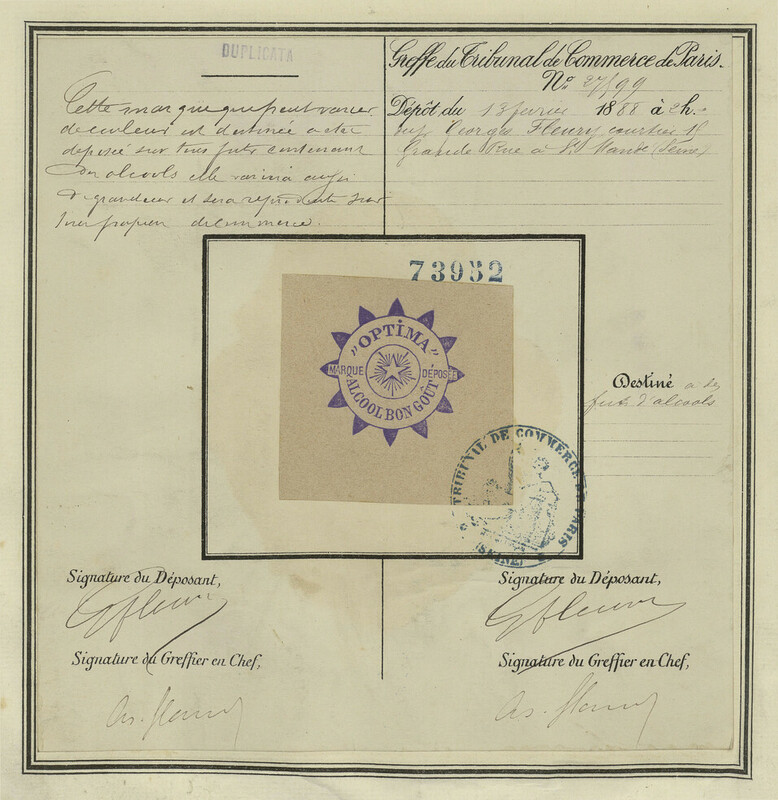 DUPLICATA
Cette marque qui peut varier
de couleur est destinée a etre
deposé sur tous futs contenant
des alcools elle variera aussi
de grandeur et sera reproduite sur
tous papiers de commerce.
Greffe du Tribunal de Commerce de Paris.
No. 27/99
Dépôt du 13 fevrier 1888 à 2h.
Georges Fleury courtier 15
Grande Rue à St Mandé (Seine)
73932
"OPTIMA"
MARQUE DÉPOSÉE
ALCOOL BON GOÛT
TRIBUNAL DE COMMERCE DE PARIS
(SEINE)
Destiné a des
futs d'alcools
Signature du Déposant,
GFleury
Signature du Greffier en Chef,
Signature du Déposant,
GFleury
Signature du Greffier en Chef,